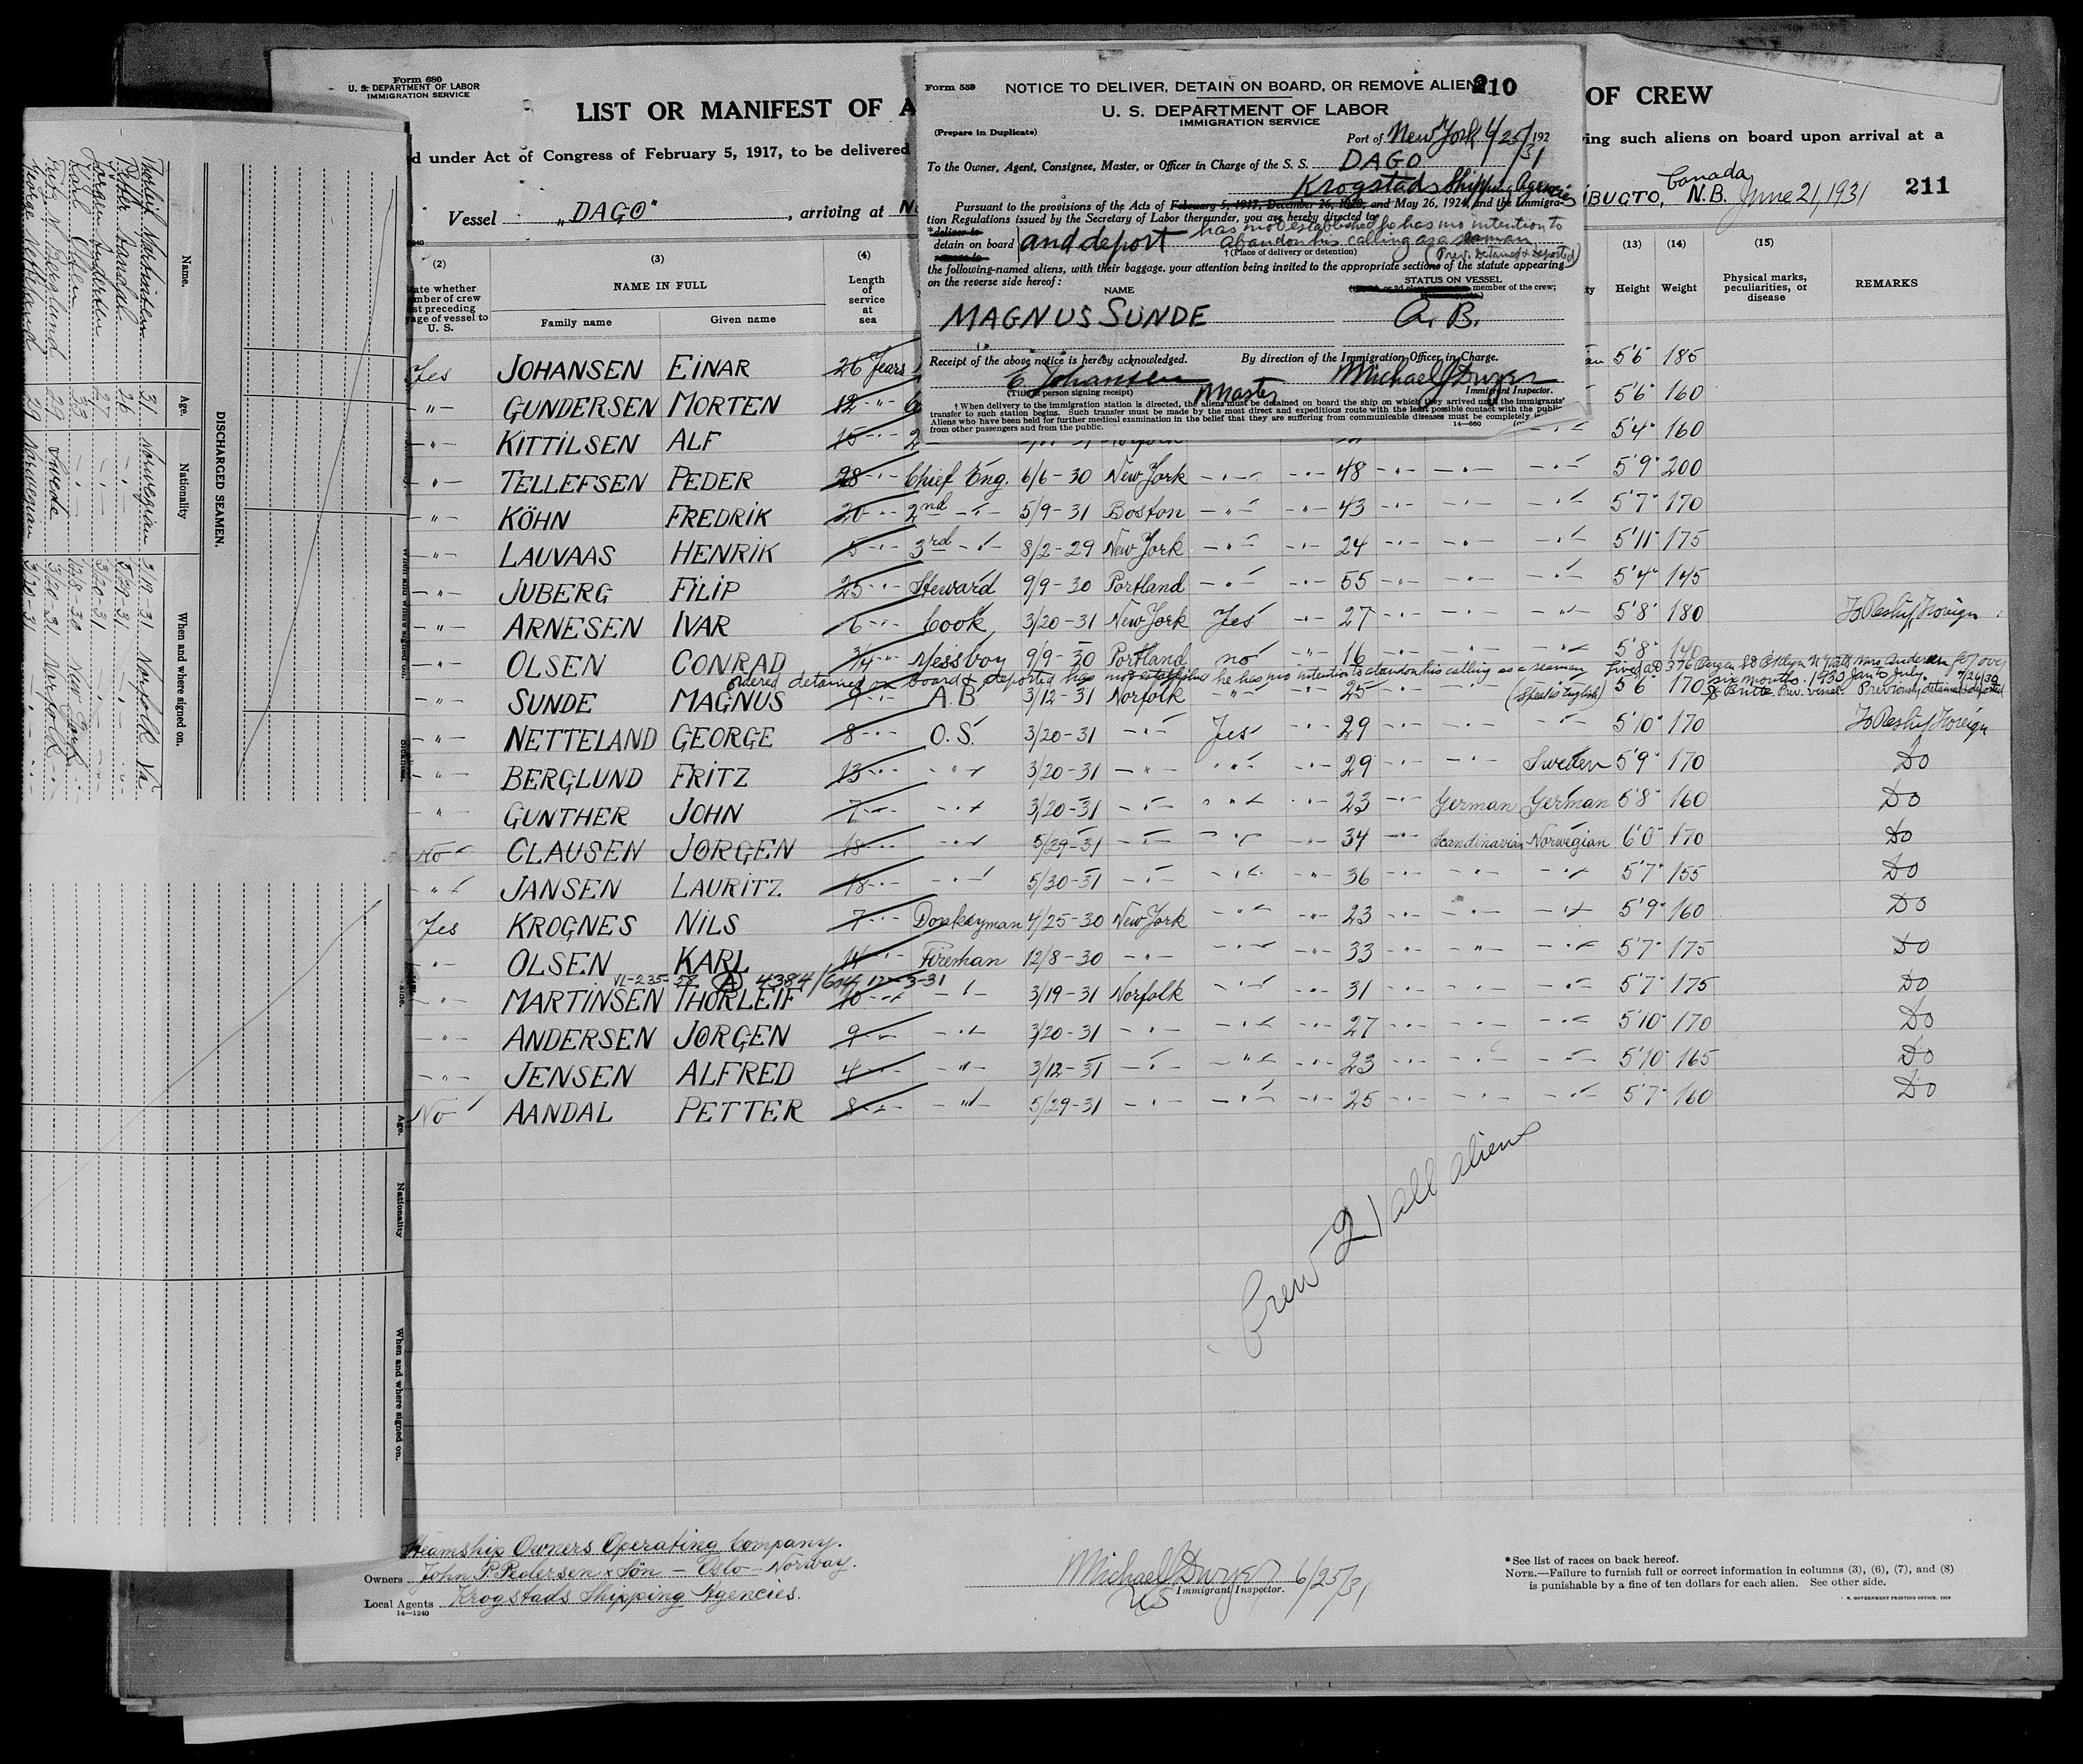 Form 680
U. S. DEPARTMENT OF LABOR
IMMIGRATION SERVICE
LIST OR MANIFEST OF A
OF CREW
d under Act of Congress of February 5, 1917, to be delivered
ing such aliens on board upon arrival at a
Vessel „DAGO", arriving at
IBUGTO, N.B. Canada June 21, 1931
211
Form 559 NOTICE TO DELIVER, DETAIN ON BOARD, OR REMOVE ALIEN 210
U. S. DEPARTMENT OF LABOR
IMMIGRATION SERVICE
(Prepare in Duplicate)
Port of New York 6/25/31 192
To the Owner, Agent, Consignee, Master, or Officer in Charge of the S. S. DAGO
Krogstads Shipping Agencies
Pursuant to the provisions of the Acts of February 5, 1917, December 26, 1920, and May 26, 1924, and the Immigra-
tion Regulations issued by the Secretary of Labor thereunder, you are hereby directed to
*deliver to
detain on board and deport has not established he has no intention to
abandon his calling as a seaman
remove to
†(Place of delivery or detention) (Prev. Detained & Deported)
the following-named aliens, with their baggage, your attention being invited to the appropriate sections of the statute appearing
on the reverse side hereof:
NAME STATUS ON VESSEL
member of the crew;
MAGNUS SUNDE A. B.
Receipt of the above notice is hereby acknowledged. By direction of the Immigration Officer in Charge.
E. Johansen Master Michael J Dwyer
(Title of person signing receipt) Immigrant Inspector.
† When delivery to the immigration station is directed, the aliens must be detained on board the ship on which they arrived until the immigrants'
transfer to such station begins. Such transfer must be made by the most direct and expeditious route with the least possible contact with the public.
Aliens who have been held for further medical examination in the belief that they are suffering from communicable diseases must be completely
from other passengers and from the public. 14—660
(2) (3) (4) (13) (14) (15)
State whether member of crew last preceding voyage of vessel to U. S.
NAME IN FULL
Family name Given name
Length of service at sea
Height Weight
Physical marks, peculiarities, or disease
REMARKS
Yes JOHANSEN EINAR 26 Years 5'6" 185
-"- GUNDERSEN MORTEN 12 -"- 5'6" 160
-"- KITTILSEN ALF 15 -"- 2 5'4" 160
-"- TELLEFSEN PEDER 28 -"- Chief Eng. 6/6-30 New York -"- -"- 48 -"- -"- -"- 5'9" 200
-"- KÖHN FREDRIK 20 -"- 2nd -"- 5/9-31 Boston -"- -"- 43 -"- -"- -"- 5'7" 170
-"- LAUVAAS HENRIK 5 -"- 3rd -"- 8/2-29 New York -"- -"- 24 -"- -"- -"- 5'11" 175
-"- JUBERG FILIP 25 -"- Steward 9/9-30 Portland -"- -"- 55 -"- -"- -"- 5'4" 145
-"- ARNESEN IVAR 6 -"- Cook 3/20-31 New York Yes -"- 27 -"- -"- -"- 5'8" 180 To Reship Foreign
-"- OLSEN CONRAD 3/4 -"- Messboy 9/9-30 Portland no -"- 16 -"- -"- -"- 5'8" 140
ordered detained on board & deported has not established he has no intention to abandon his calling as a seaman
six months. 1930 Jan to July.
SUNDE MAGNUS 9 -"- A.B. 3/12-31 Norfolk -"- -"- 25 -"- -"- (Speaks English) 5'6" 170 Prev. vessel. Previously detained & deported
-"- NETTELAND GEORGE 8 -"- O.S. 3/20-31 -"- Yes -"- 29 -"- -"- -"- 5'10" 170 To Reship Foreign
-"- BERGLUND FRITZ 13 -"- -"- 3/20-31 -"- -"- -"- 29 -"- -"- Sweden 5'9" 170 Do
-"- GUNTHER JOHN 7 -"- -"- 3/20-31 -"- -"- -"- 23 -"- German German 5'8" 160 Do
No CLAUSEN JØRGEN 18 -"- -"- 5/29-31 -"- -"- -"- 34 -"- Scandinavian Norwegian 6'0" 170 Do
-"- JANSEN LAURITZ 18 -"- -"- 5/30-31 -"- -"- -"- 36 -"- -"- -"- 5'7" 155 Do
Yes KROGNES NILS 7 -"- Donkeyman 4/25-30 New York -"- -"- 23 -"- -"- -"- 5'9" 160 Do
-"- OLSEN KARL 14 -"- Fireman 12/8-30 -"- -"- -"- 33 -"- -"- -"- 5'7" 175 Do
VL-235-58 (A) 4384/604 12-3-31
-"- MARTINSEN THORLEIF 10 -"- -"- 3/19-31 Norfolk -"- -"- 31 -"- -"- -"- 5'7" 175 Do
-"- ANDERSEN JØRGEN 9 -"- -"- 3/20-31 -"- -"- -"- 27 -"- -"- -"- 5'10" 170 Do
-"- JENSEN ALFRED 4 -"- -"- 3/12-31 -"- -"- -"- 23 -"- -"- -"- 5'10" 165 Do
No AANDAL PETTER 8 -"- -"- 5/29-31 -"- -"- -"- 25 -"- -"- -"- 5'7" 160 Do
Crew 21 all aliens
Steamship Owners Operating Company.
Owners John P. Pedersen & Sön – Oslo – Norway.
Local Agents Krogstads Shipping Agencies.
14—1240
Michael J Dwyer 6/25/31
US Immigrant Inspector.
*See list of races on back hereof.
NOTE.—Failure to furnish full or correct information in columns (3), (6), (7), and (8)
is punishable by a fine of ten dollars for each alien. See other side.
U. S. GOVERNMENT PRINTING OFFICE
DISCHARGED SEAMEN.
Name. Age. Nationality When and where signed on.
Thorleif Martinsen 31 Norwegian 3/19-31 Norfolk Va.
Petter Aandal 26 -"- 5/29-31 -"-
Jørgen Andersen 27 -"- 3/20-31 -"-
Karl Olsen 33 -"- 12/8-30 New York
Fritz Berglund 29 Swede 3/20-31 Norfolk
George Netteland 29 Norwegian 3/20-31 -"-
Age. Nationality When and where signed on.